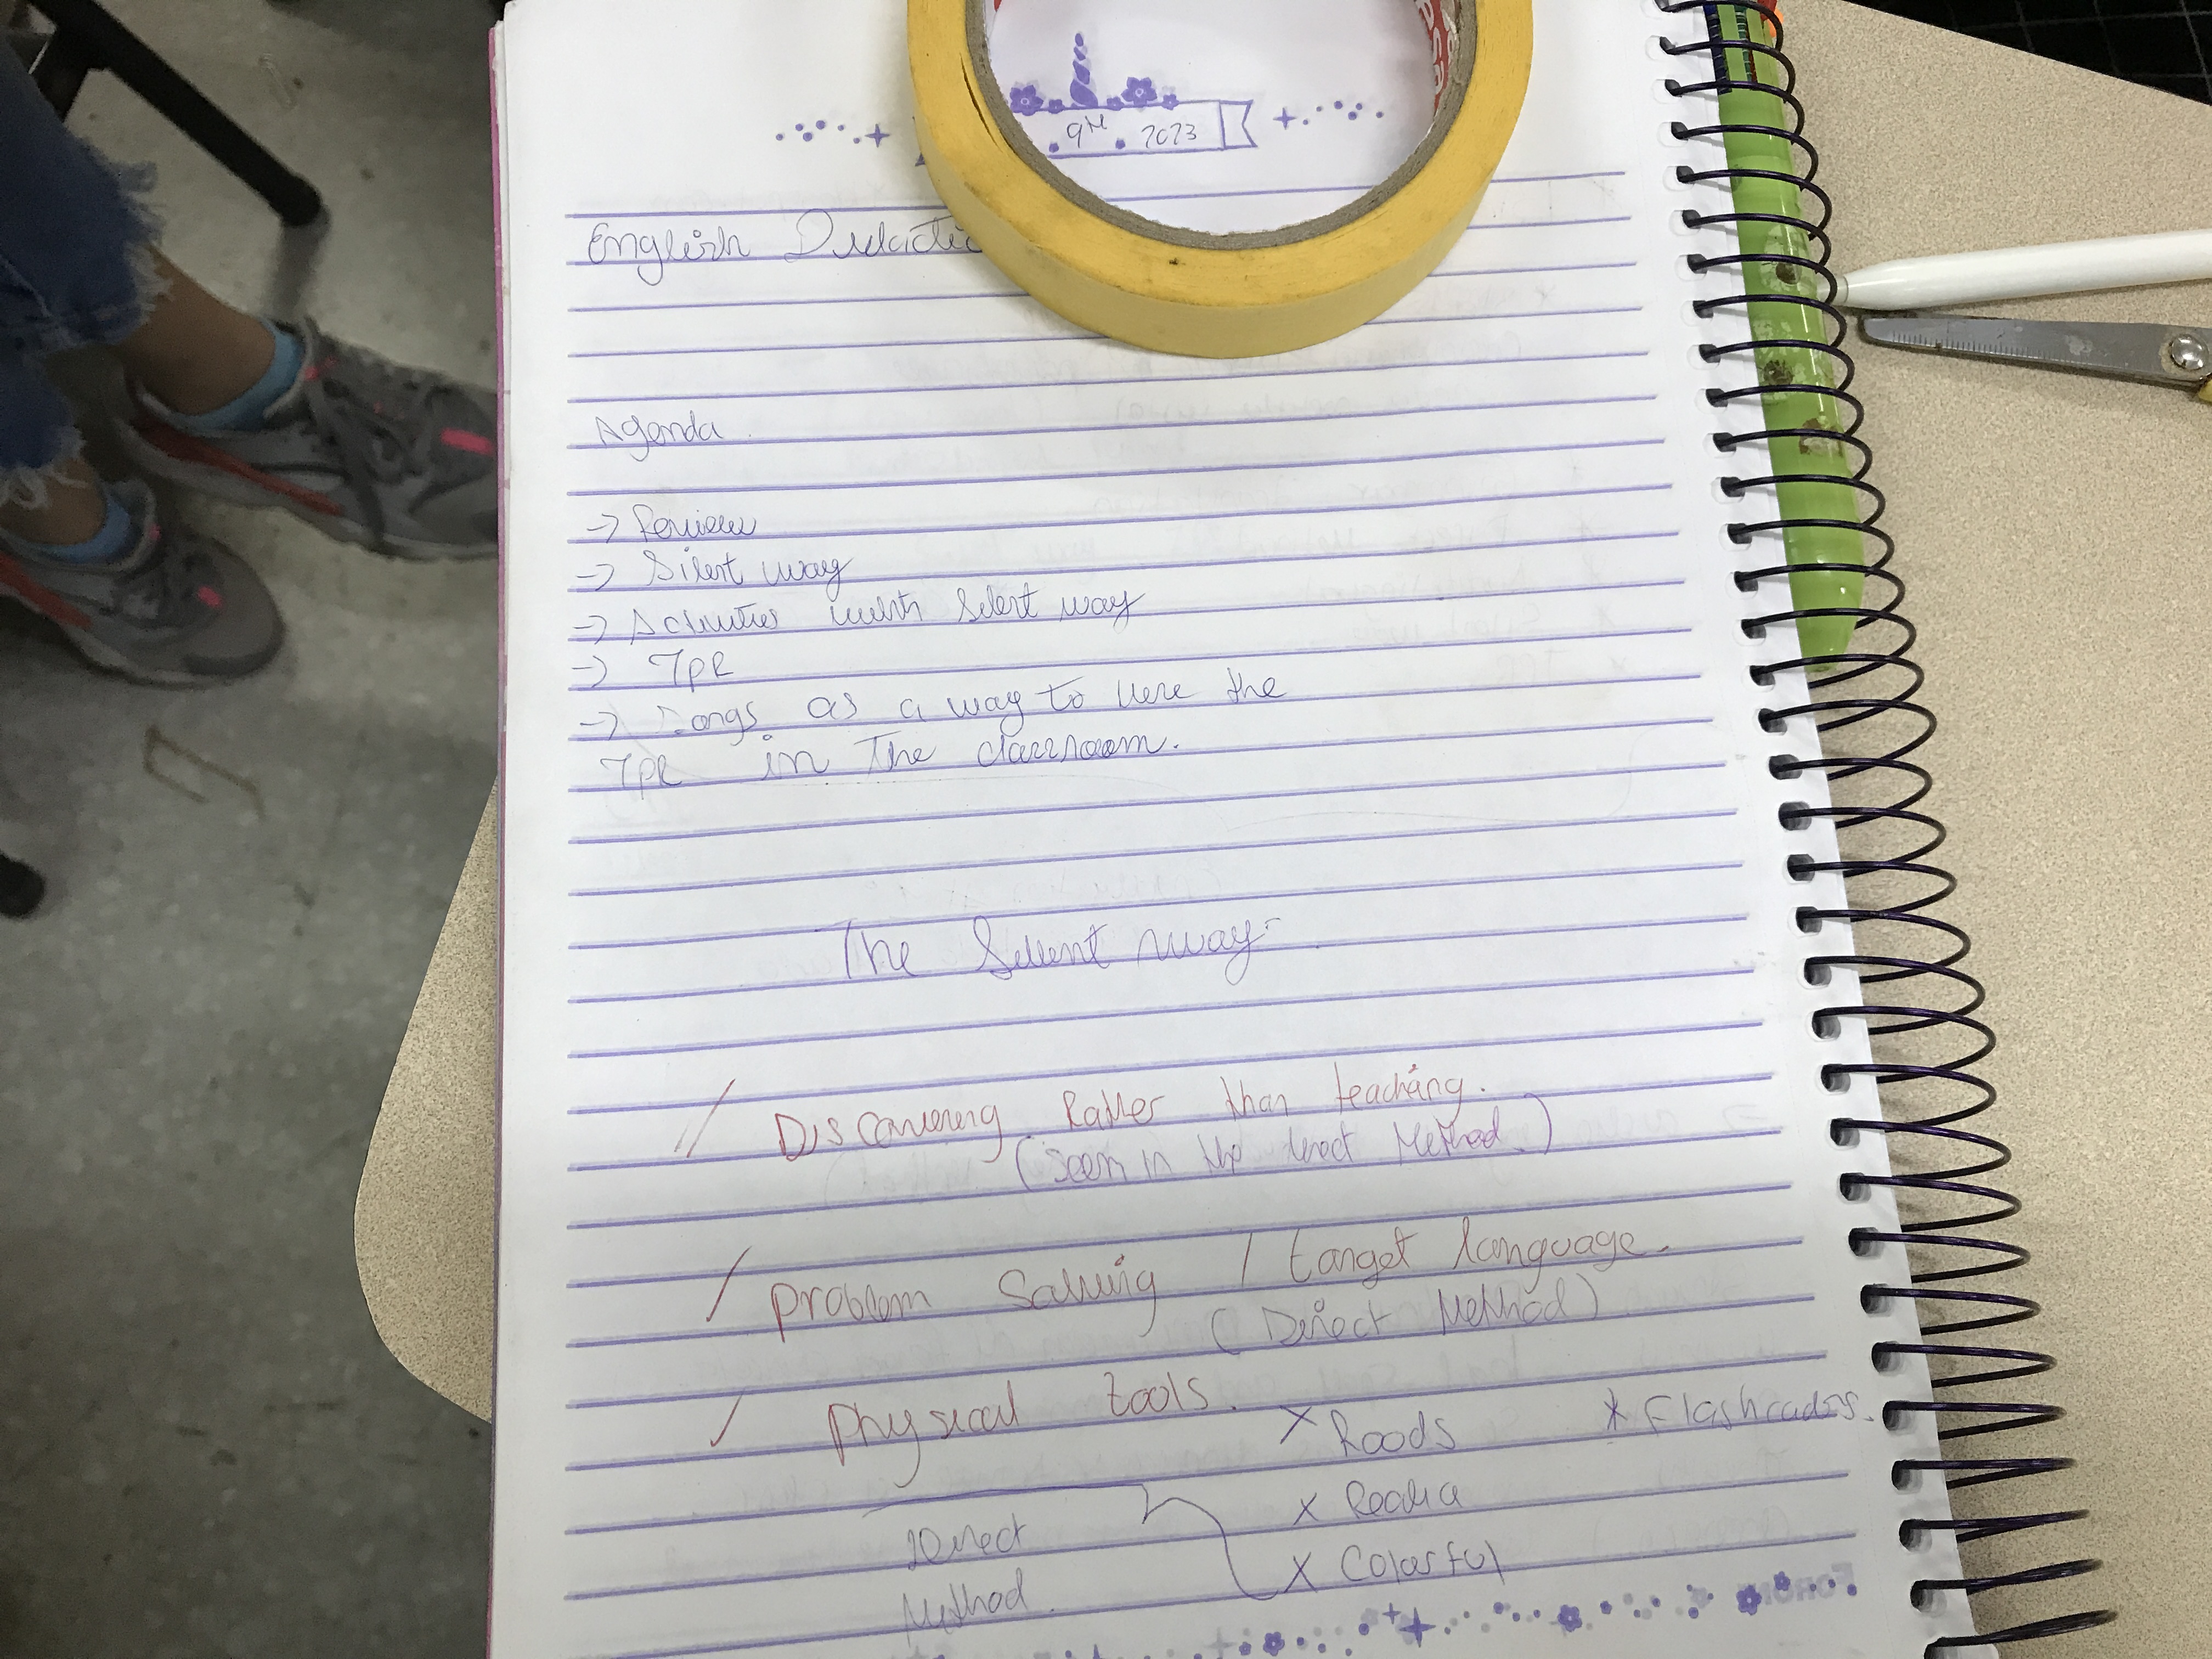 9th 2023
English Didactic
Agenda
-> Review
-> Silent way
-> Activities with Silent way
-> TPR
-> Songs as a way to use the
TPR in The classroom.
The Silent way
/ Discovering Rather than teaching.
(seen in the direct Method.)
/ problem Solving / target language.
(Direct Method)
/ physical tools. x Roods * Flashcards.
x Realia
Direct
x Colorful
Method.